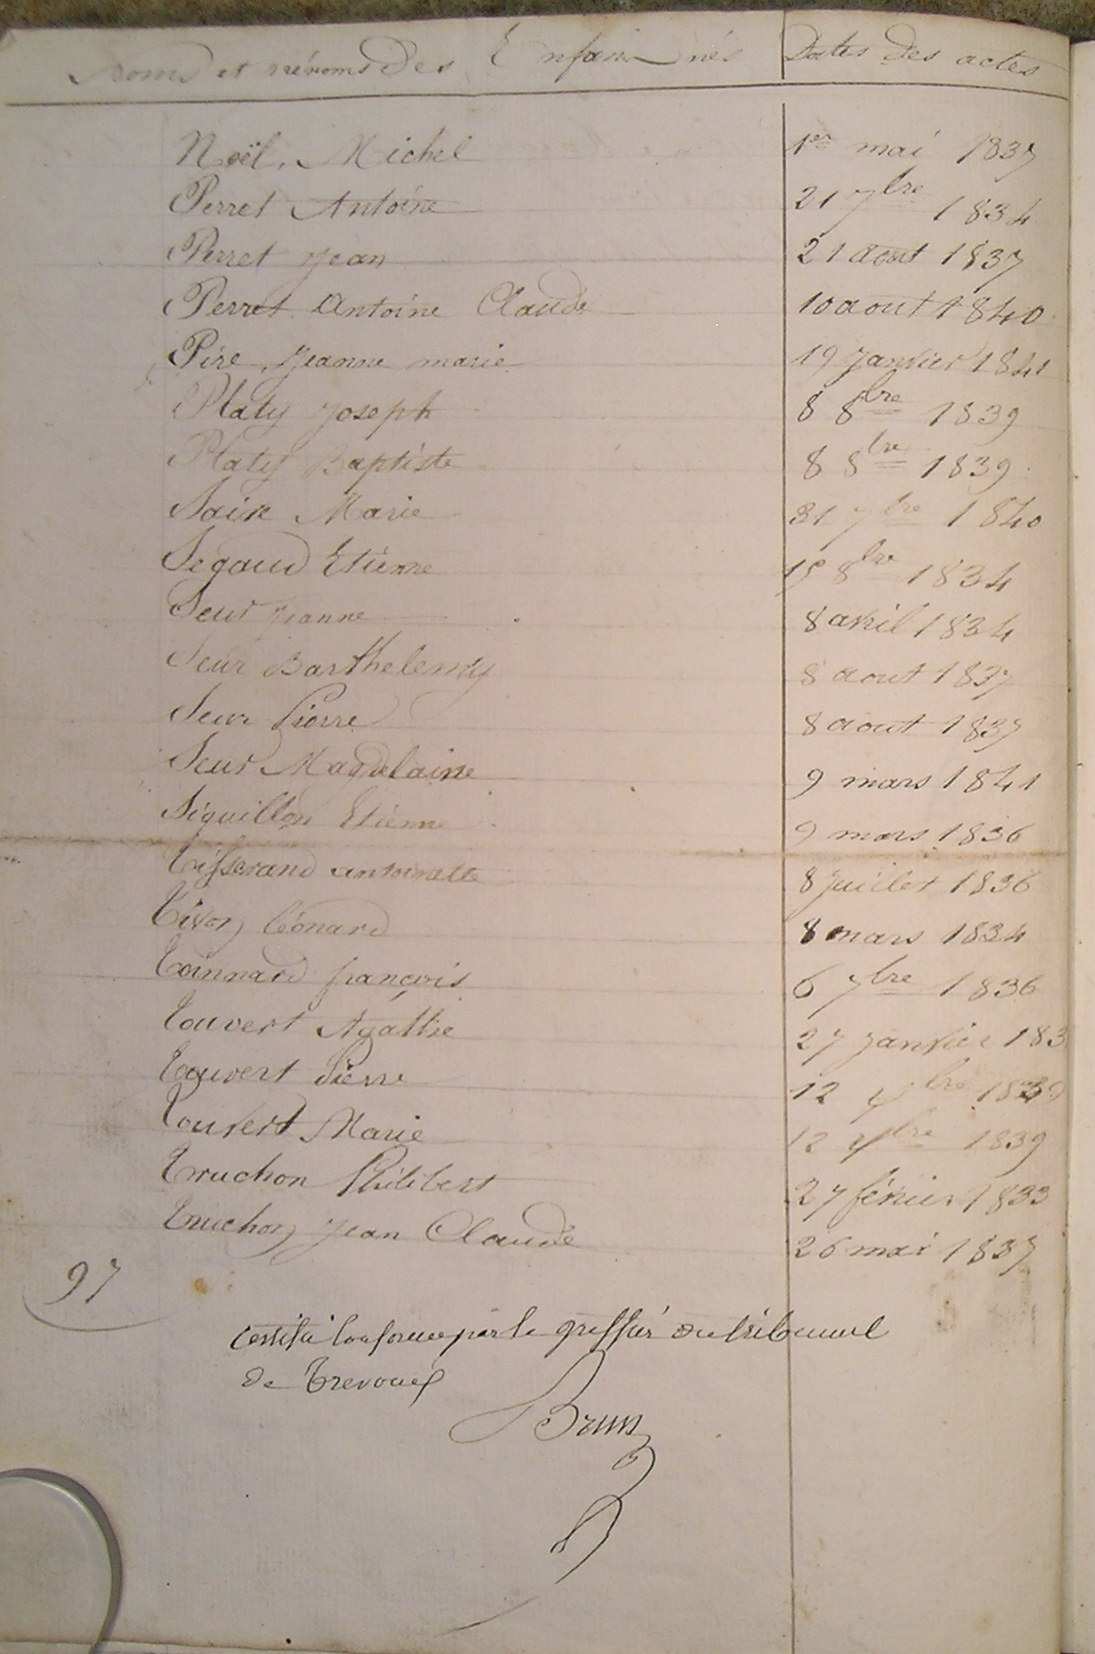 Noms et prénoms des Enfans nés Dates des actes
Noël, Michel 1er mai 1837
Perret Antoine 21 7bre 1834
Perret Jean 21 aout 1837
Perret Antoine Claude 10 aout 1840
Pire, Jeanne marie 19 Janvier 1841
Platy Joseph 8 8bre 1839
Platy Baptiste 8 8bre 1839
Saix Marie 31 7bre 1840
Segaud Etienne 15 8bre 1834
Seur Jeanne 8 avril 1834
Seur Barthelemy 8 aout 1837
Seur Pierre 8 aout 1837
Seur Magdelaine 9 mars 1841
Siguillon Etienne 9 mars 1836
Tisserand antoinette 8 Juillet 1836
Tivon léonard 8 mars 1834
Toinnard françois 6 7bre 1836
Touvert Agathe 27 Janvier 183
Touvert Pierre 12 9bre 1839
Touvert Marie 12 9bre 1839
Truchon Philibert 27 février 1833
Truchon Jean Claude 26 mai 1837
97
Certifié Conforme par le greffier du tribunal
de Trevoux
Brun